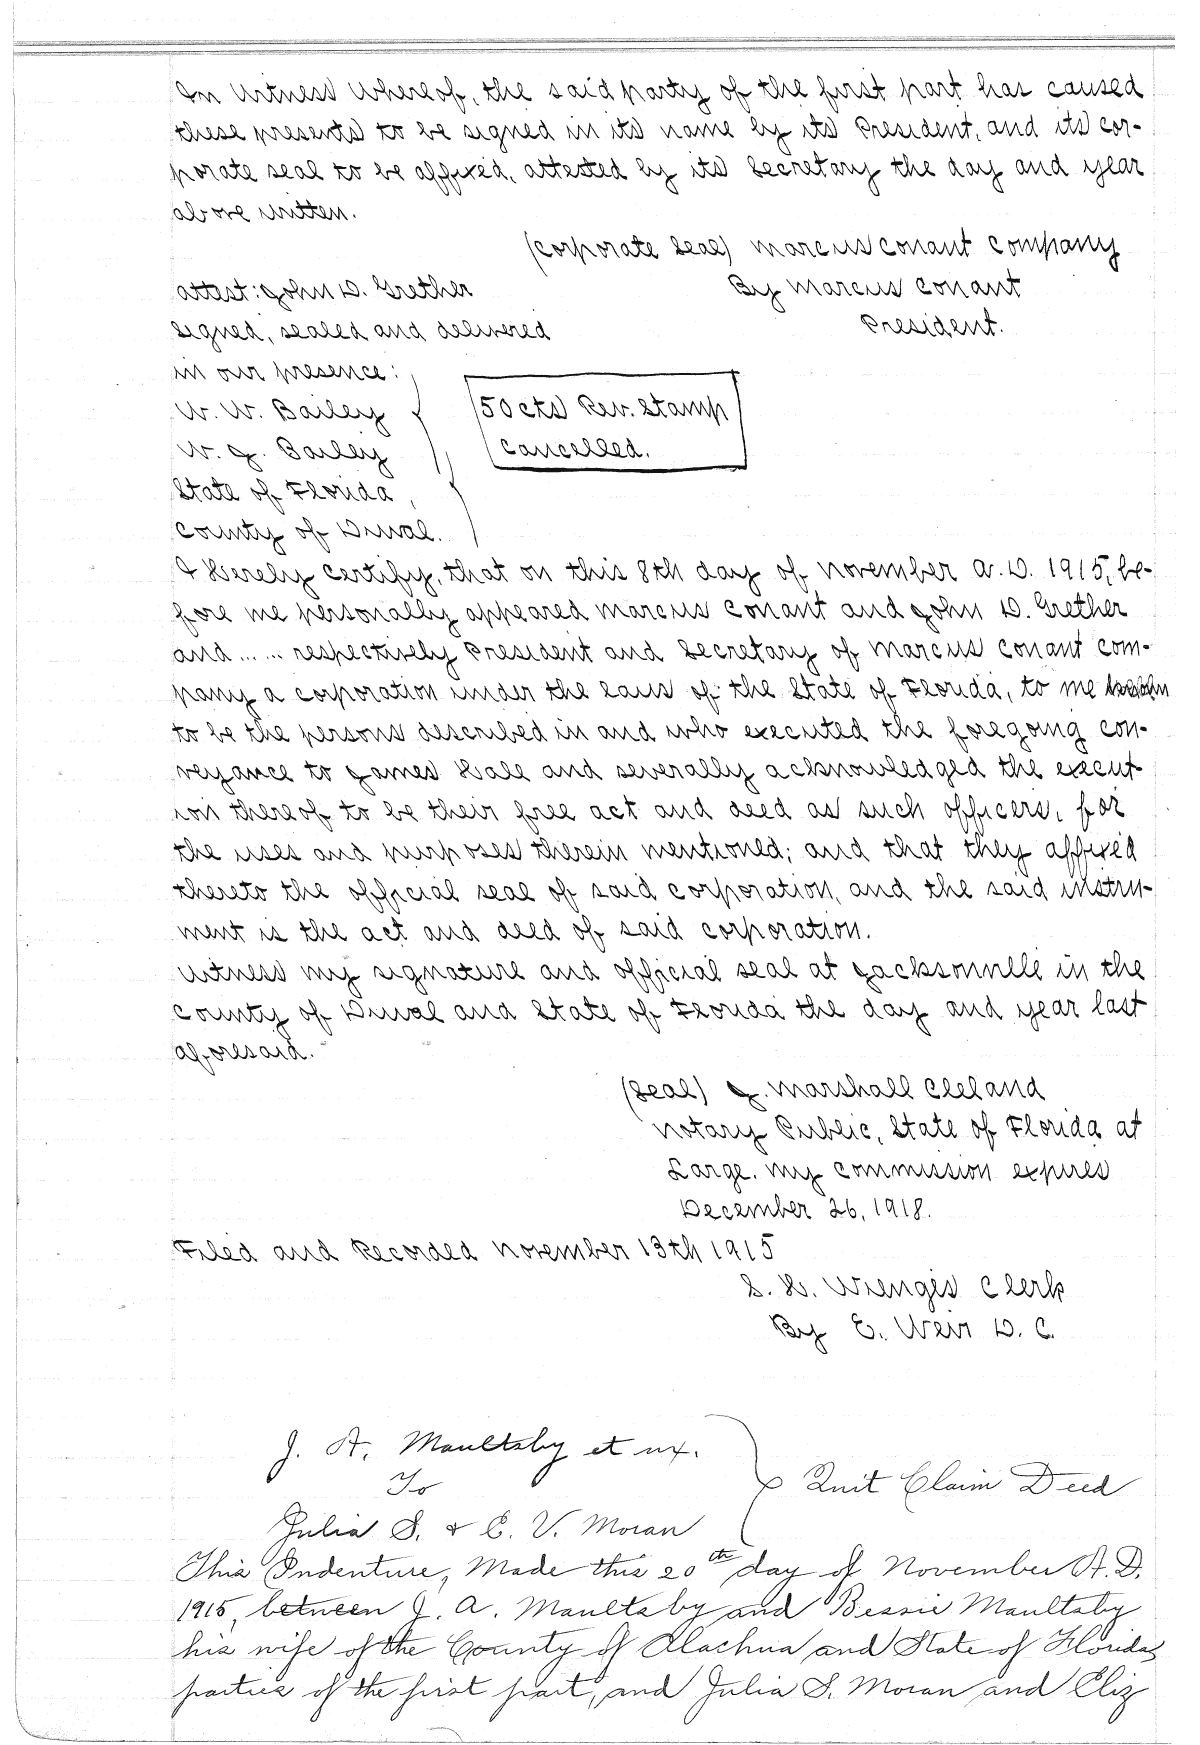 In Witness Whereof, the said party of the first part has caused
these presents to be signed in its name by its President, and its cor-
porate seal to be affixed, attested by its Secretary the day and year
above written.
(Corporate Seal) Marcus Conant Company
Attest: John D. Grether By Marcus Conant
Signed, sealed and delivered President.
in our presence:
W. W. Bailey
50 cts Rev. Stamp
W. J. Bailey
Cancelled.
State of Florida,
County of Duval.
I Hereby Certify, that on this 8th day of November A. D. 1915, be-
fore me personally appeared Marcus Conant and John D. Grether
and ... ... respectively President and Secretary of Marcus Conant Com-
pany a corporation under the laws of the State of Florida, to me known
to be the persons described in and who executed the foregoing con-
veyance to James Hale and severally acknowledged the execut-
ion thereof to be their free act and deed as such officers, for
the uses and purposes therein mentioned; and that they affixed
thereto the official seal of said corporation, and the said instru-
ment is the act and deed of said corporation.
Witness my signature and official seal at Jacksonville in the
County of Duval and State of Florida the day and year last
aforesaid.
(Seal) J. Marshall Cleland
Notary Public, State of Florida at
Large. My commission expires
December 26, 1918.
Filed and Recorded November 13th 1915
S. H. Wienges Clerk
By E. Weir D. C.
J. A. Maultsby et ux.
To
Quit Claim Deed
Julia S. & E. V. Moran
This Indenture, Made this 20th day of November A. D.
1915, between J. A. Maultsby and Bessie Maultsby
his wife of the County of Alachua and State of Florida
parties of the first part, and Julia S. Moran and Eliz